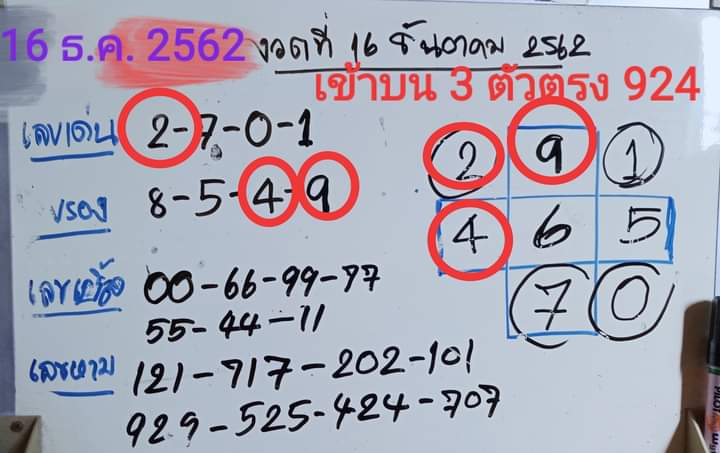 16 ธ.ค. 2562 งวดที่ 16 ธันวาคม 2562
เข้าบน 3 ตัวตรง 924
เลขเด่น 2-7-0-1
รอง 8-5-4-9
เลขเบิ้ล 00-66-99-77
55-44-11
เลขหาม 121-717-202-101
929-525-424-707
2 9 1
4 6 5
7 0